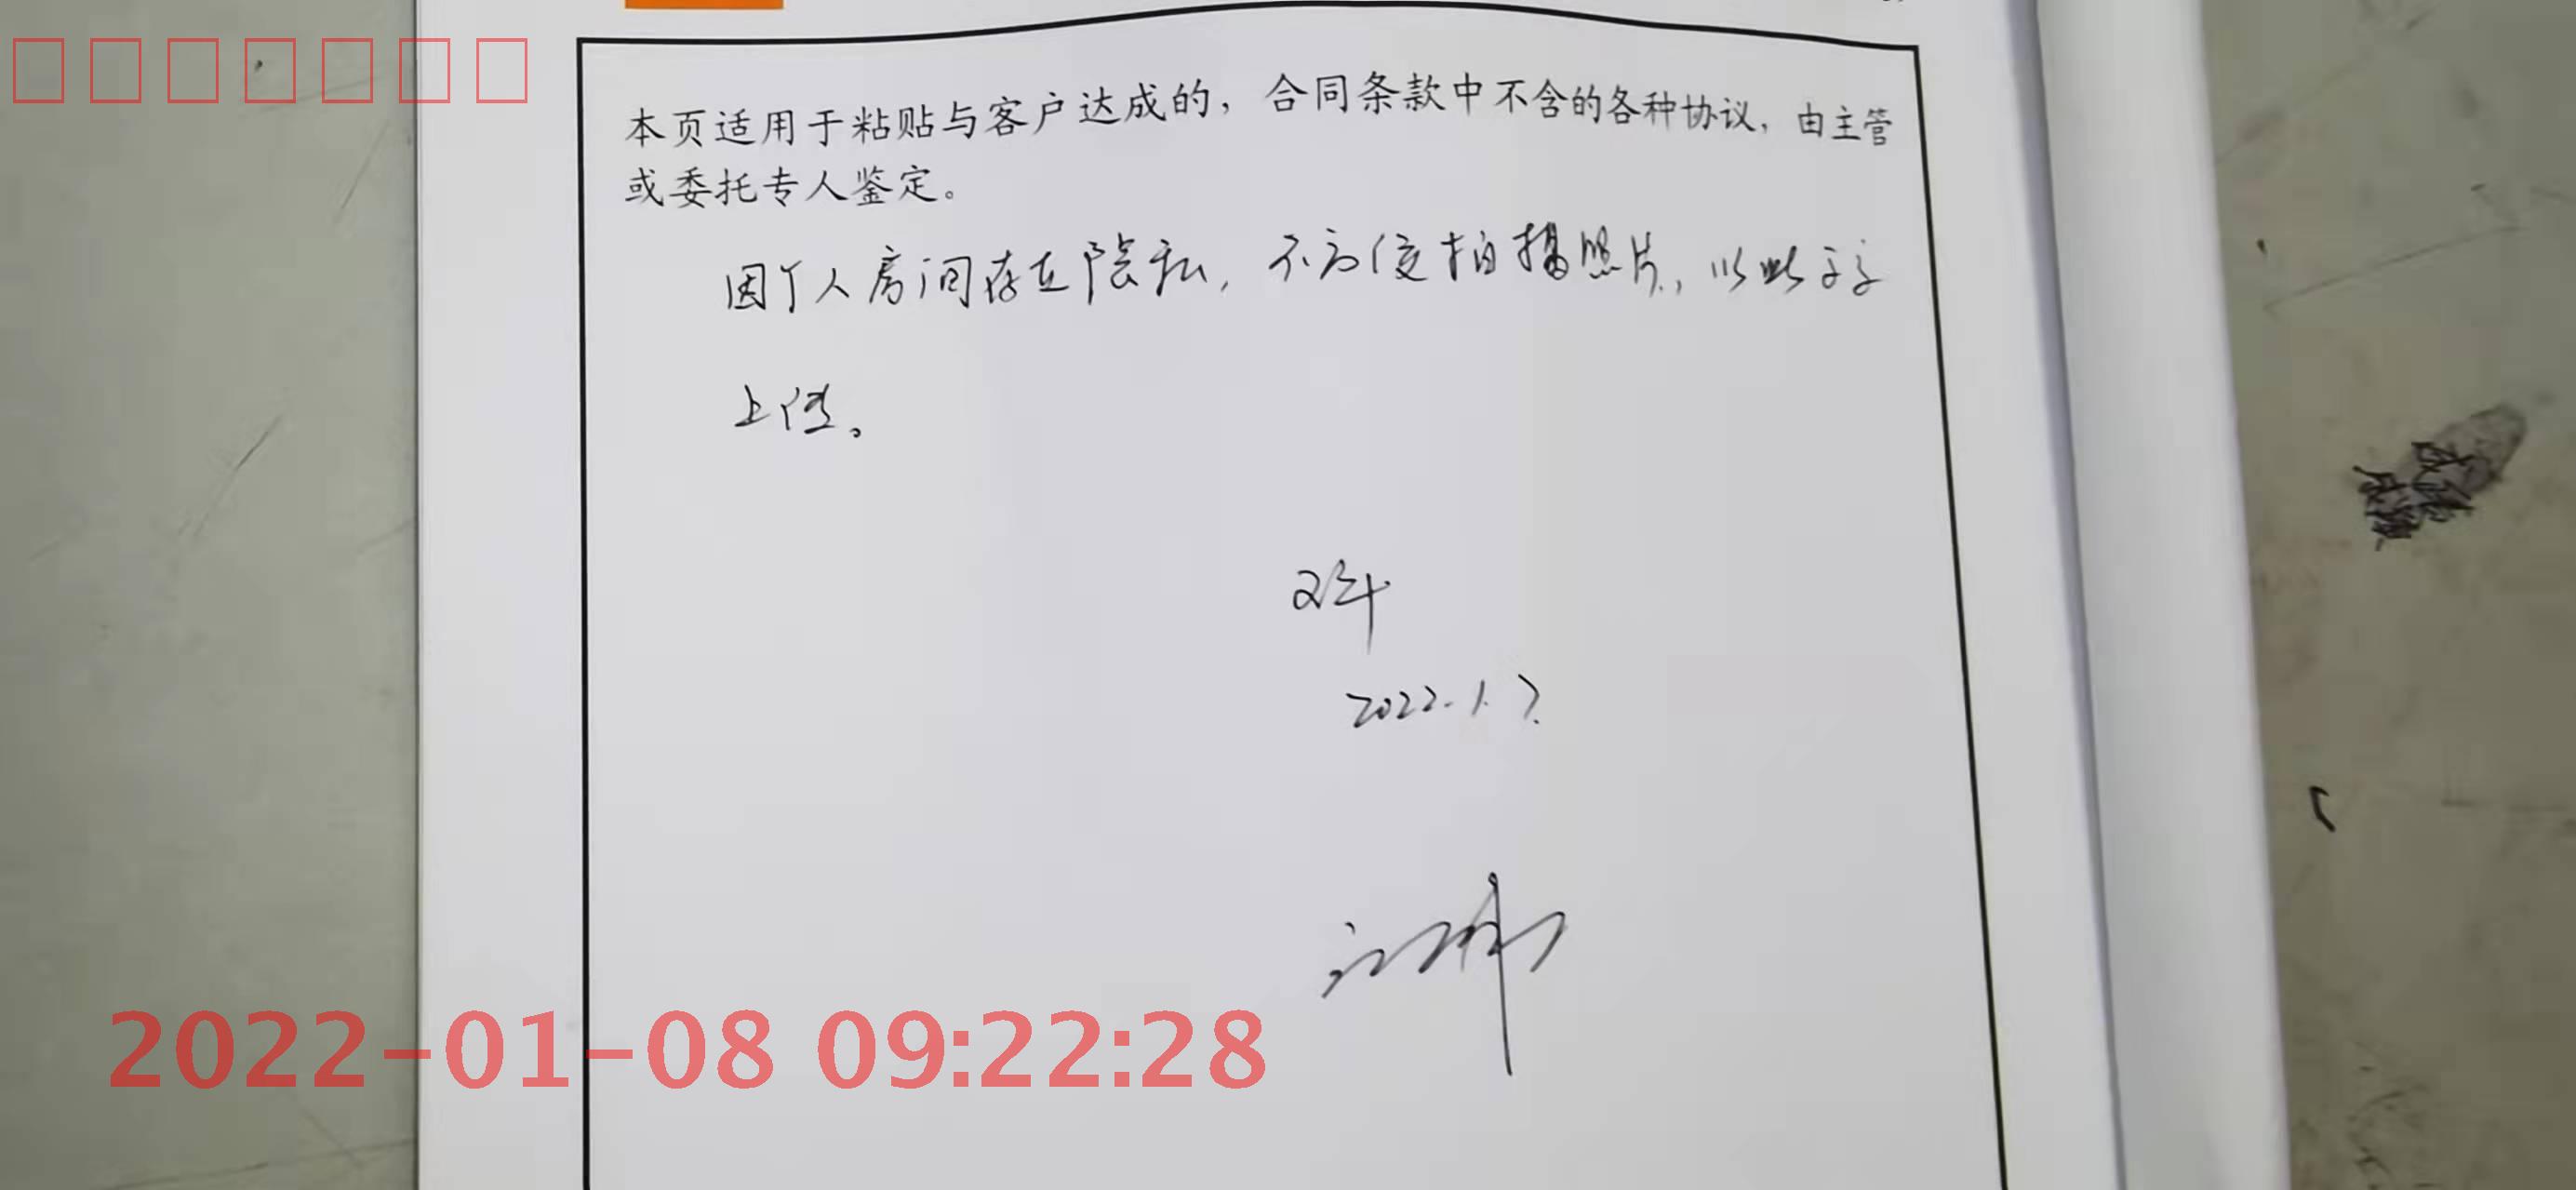 本页适用于粘贴与客户达成的，合同条款中不含的各种协议，由主管
或委托专人鉴定。
因个人房间存在隐私，不方便拍摄照片，以此
上传。
2022.1.7.
2022-01-08 09:22:28